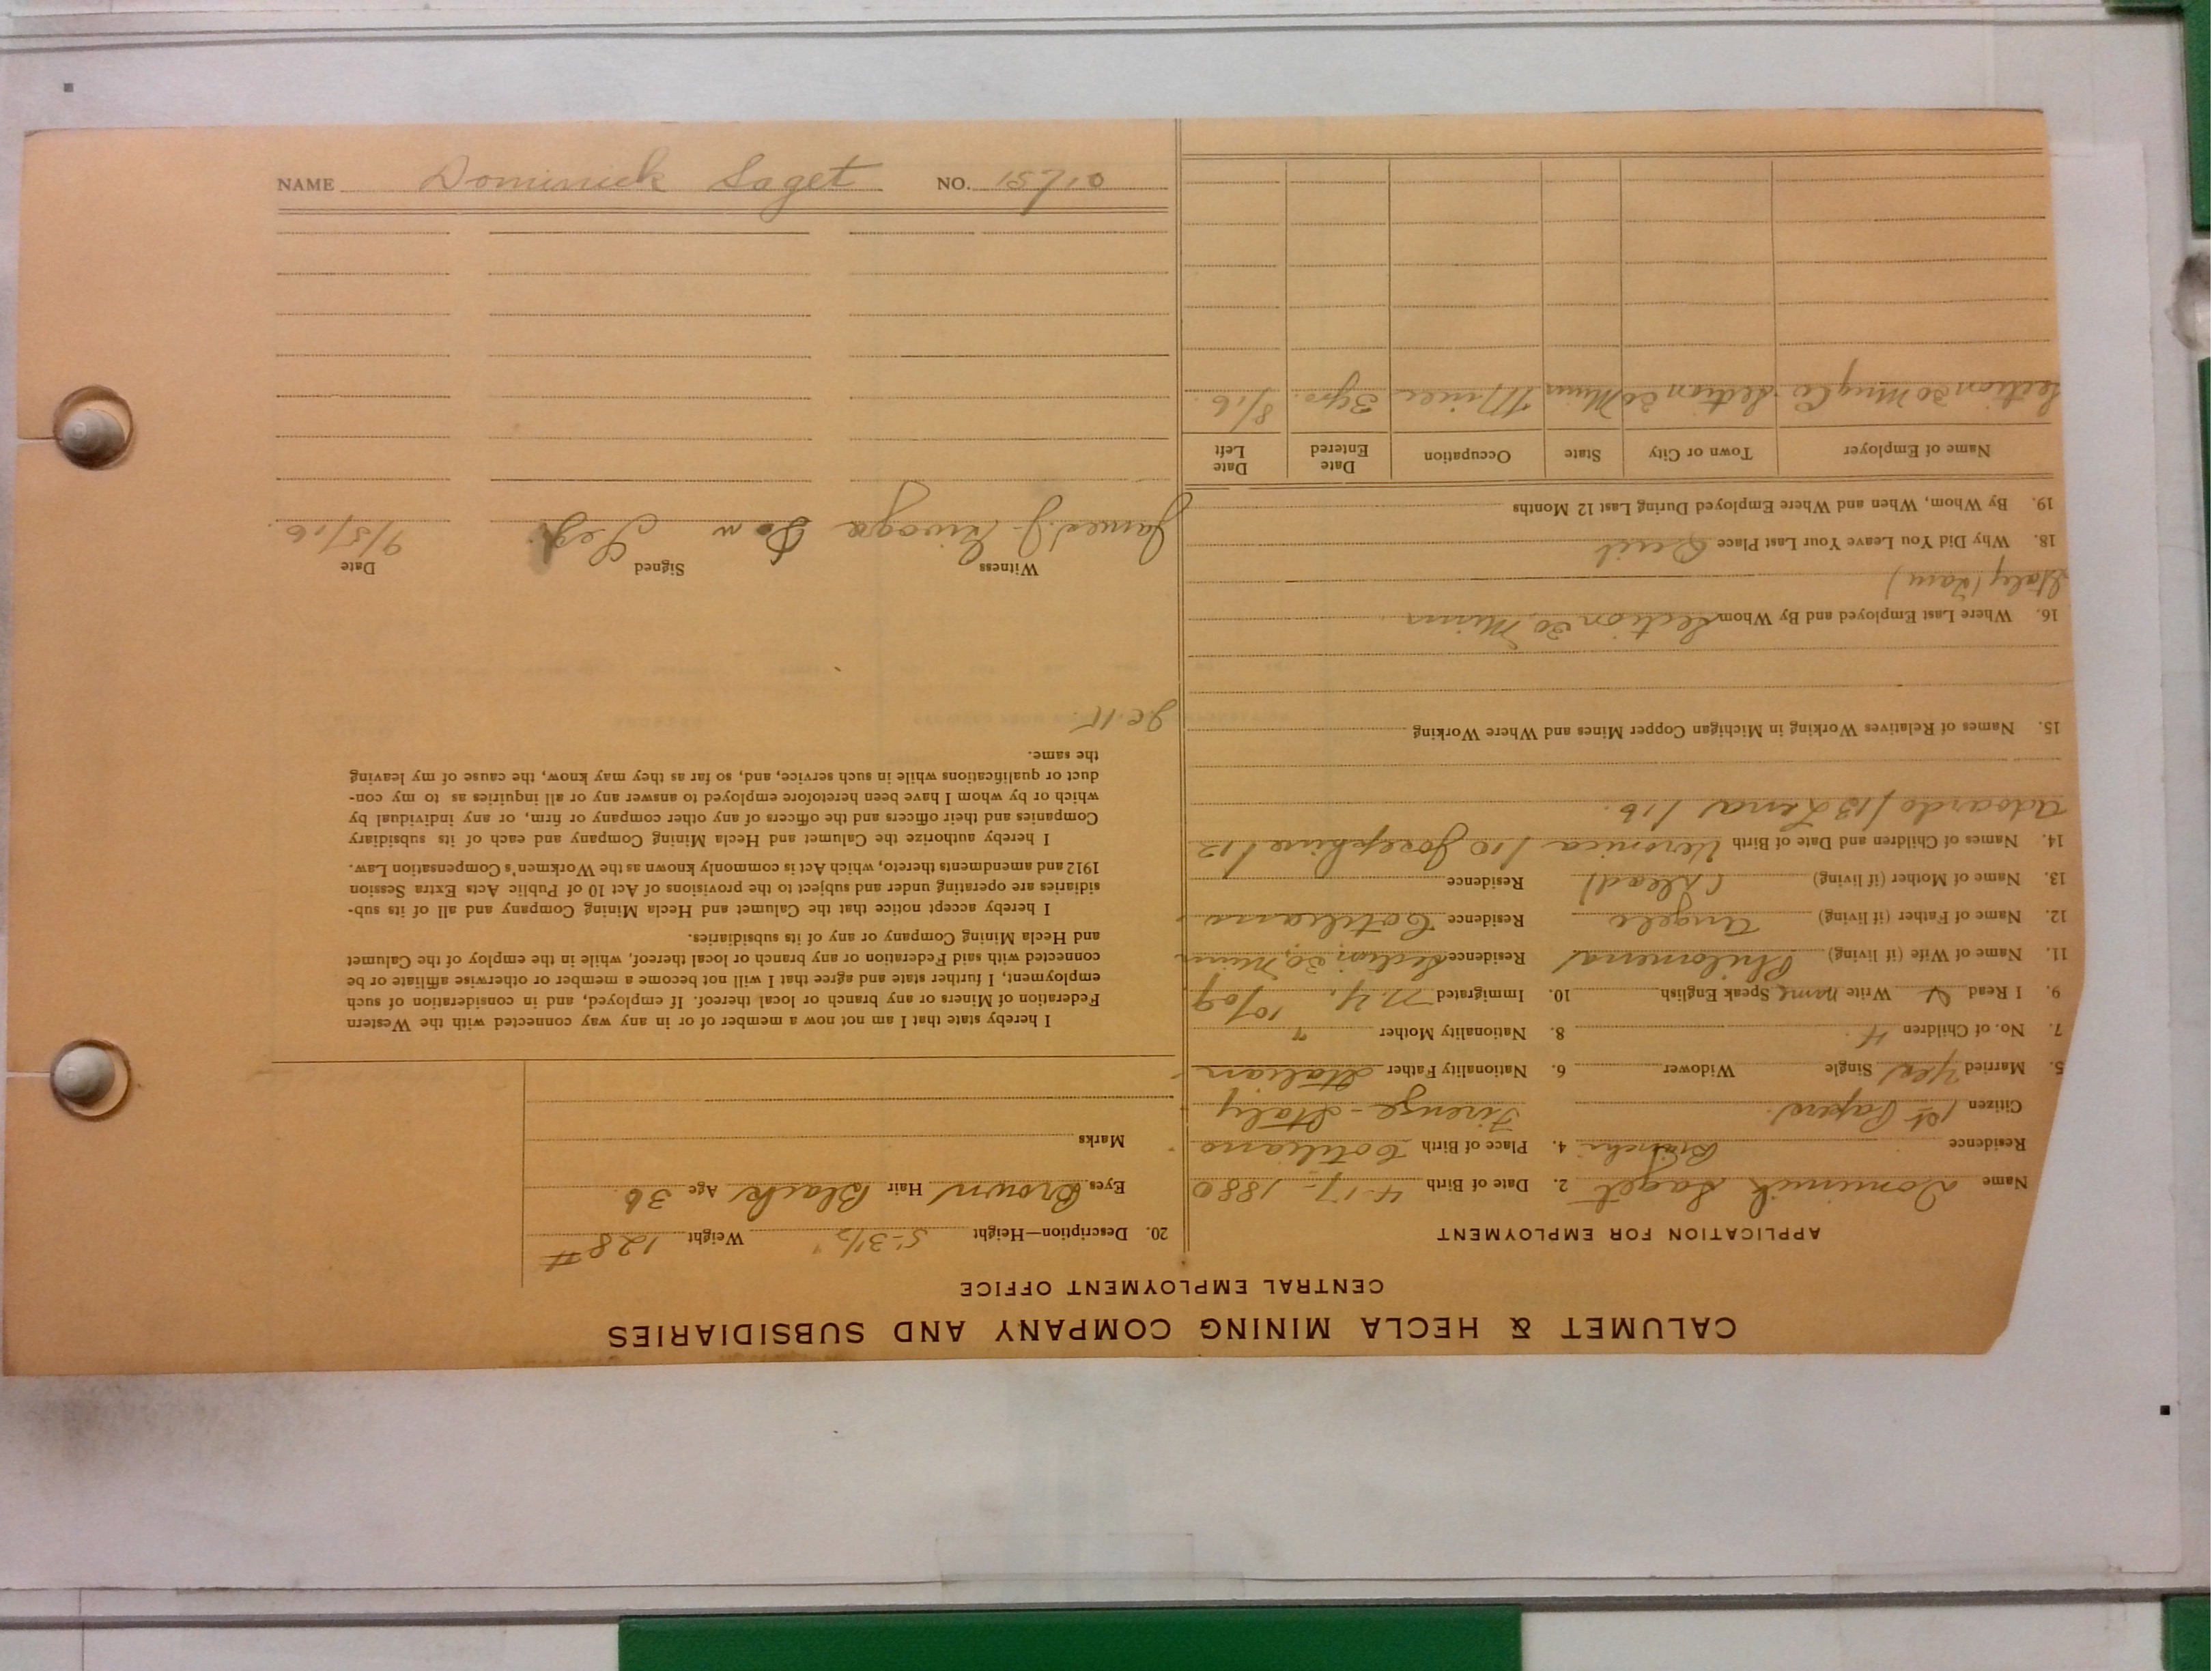 CALUMET & HECLA MINING COMPANY AND SUBSIDIARIES
CENTRAL EMPLOYMENT OFFICE
APPLICATION FOR EMPLOYMENT
Name Dominick Saget 2. Date of Birth 4-17-1880
Residence 4. Place of Birth
Citizen 1st Papers. Firenze-Italy
5. Married Yes Single Widower 6. Nationality Father Italian
7. No. of Children 4 8. Nationality Mother "
9. I Read Write name Speak English 10. Immigrated N.Y. 10/09
11. Name of Wife (if living) Philomena Residence Section 30, Minn
12. Name of Father (if living) Angelo Residence
13. Name of Mother (if living) (Dead) Residence
14. Names of Children and Date of Birth Veronica /10 Josephine /12
Adoardo /13 Lena /16.
15. Names of Relatives Working in Michigan Copper Mines and Where Working
16. Where Last Employed and By Whom Section 30, Minn
Italy (Farm)
18. Why Did You Leave Your Last Place Quit
19. By Whom, When and Where Employed During Last 12 Months
Name of Employer Town or City State Occupation Date Entered Date Left
Section 30 Mng Co. Section 30 Minn Miner 3 yrs. 8/16.
20. Description—Height 5'-3½" Weight 128#
Eyes Brown Hair Black Age 36
Marks
I hereby state that I am not now a member of or in any way connected with the Western
Federation of Miners or any branch or local thereof. If employed, and in consideration of such
employment, I further state and agree that I will not become a member or otherwise affiliate or be
connected with said Federation or any branch or local thereof, while in the employ of the Calumet
and Hecla Mining Company or any of its subsidiaries.
I hereby accept notice that the Calumet and Hecla Mining Company and all of its sub-
sidiaries are operating under and subject to the provisions of Act 10 of Public Acts Extra Session
1912 and amendments thereto, which Act is commonly known as the Workmen's Compensation Law.
I hereby authorize the Calumet and Hecla Mining Company and each of its subsidiary
Companies and their officers and the officers of any other company or firm, or any individual by
which or by whom I have been heretofore employed to answer any or all inquiries as to my con-
duct or qualifications while in such service, and, so far as they may know, the cause of my leaving
the same.
Witness Signed Date
James J. Dom 9/5/16
NAME Dominick Saget NO. 15710